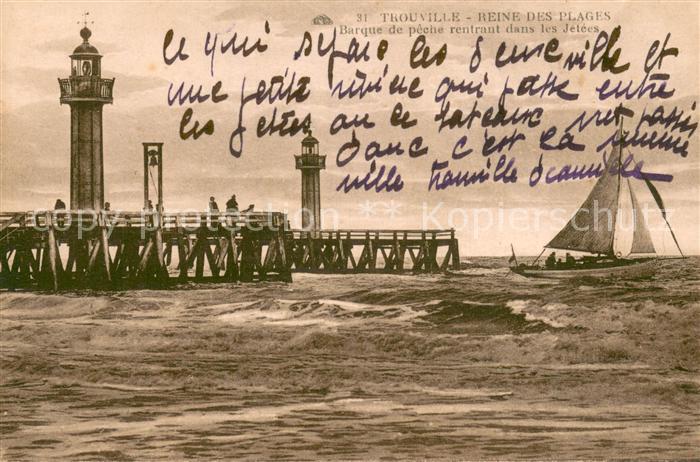 31 TROUVILLE - REINE DES PLAGES
Barque de pêche rentrant dans les Jetées.
ce qui sépare les deux ville et
une petite rivière qui passe entre
les jetées ou le bateaux passe
donc c'est la même
ville trouville deauville
copyright Kopierschutz